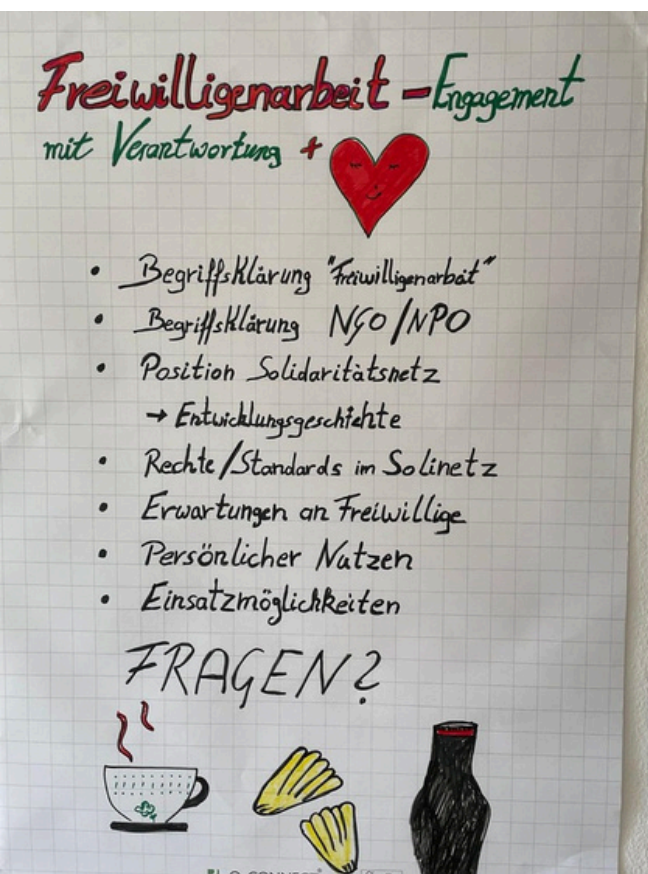 Freiwilligenarbeit – Engagement
mit Verantwortung +
• Begriffsklärung "Freiwilligenarbeit"
• Begriffsklärung NGO/NPO
• Position Solidaritätsnetz
→ Entwicklungsgeschichte
• Rechte/Standards im Solinetz
• Erwartungen an Freiwillige
• Persönlicher Nutzen
• Einsatzmöglichkeiten
FRAGEN?